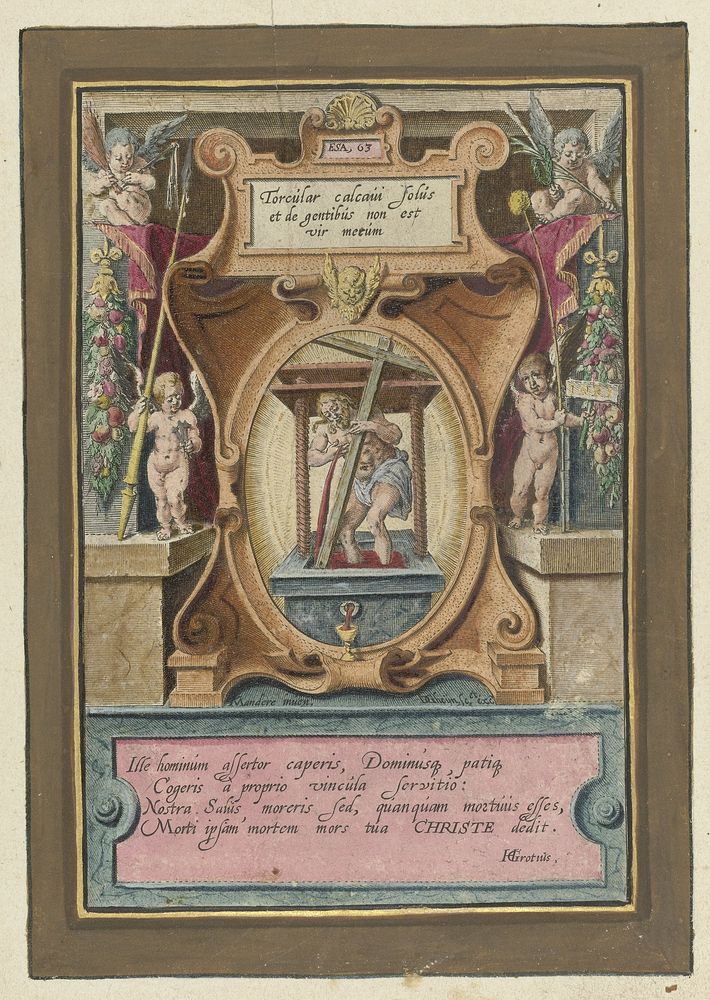 ESA, 63
Torcular calcaui solus
et de gentibus non est
vir mecum
Mandere inuen.
Ille hominum assertor caperis, Dominusq, patiq
Cogeris a proprio vincula servitio:
Nostra Salus moreris sed, quanquam mortuus esses,
Morti ipsam mortem mors tua CHRISTE dedit.
HGrotius,